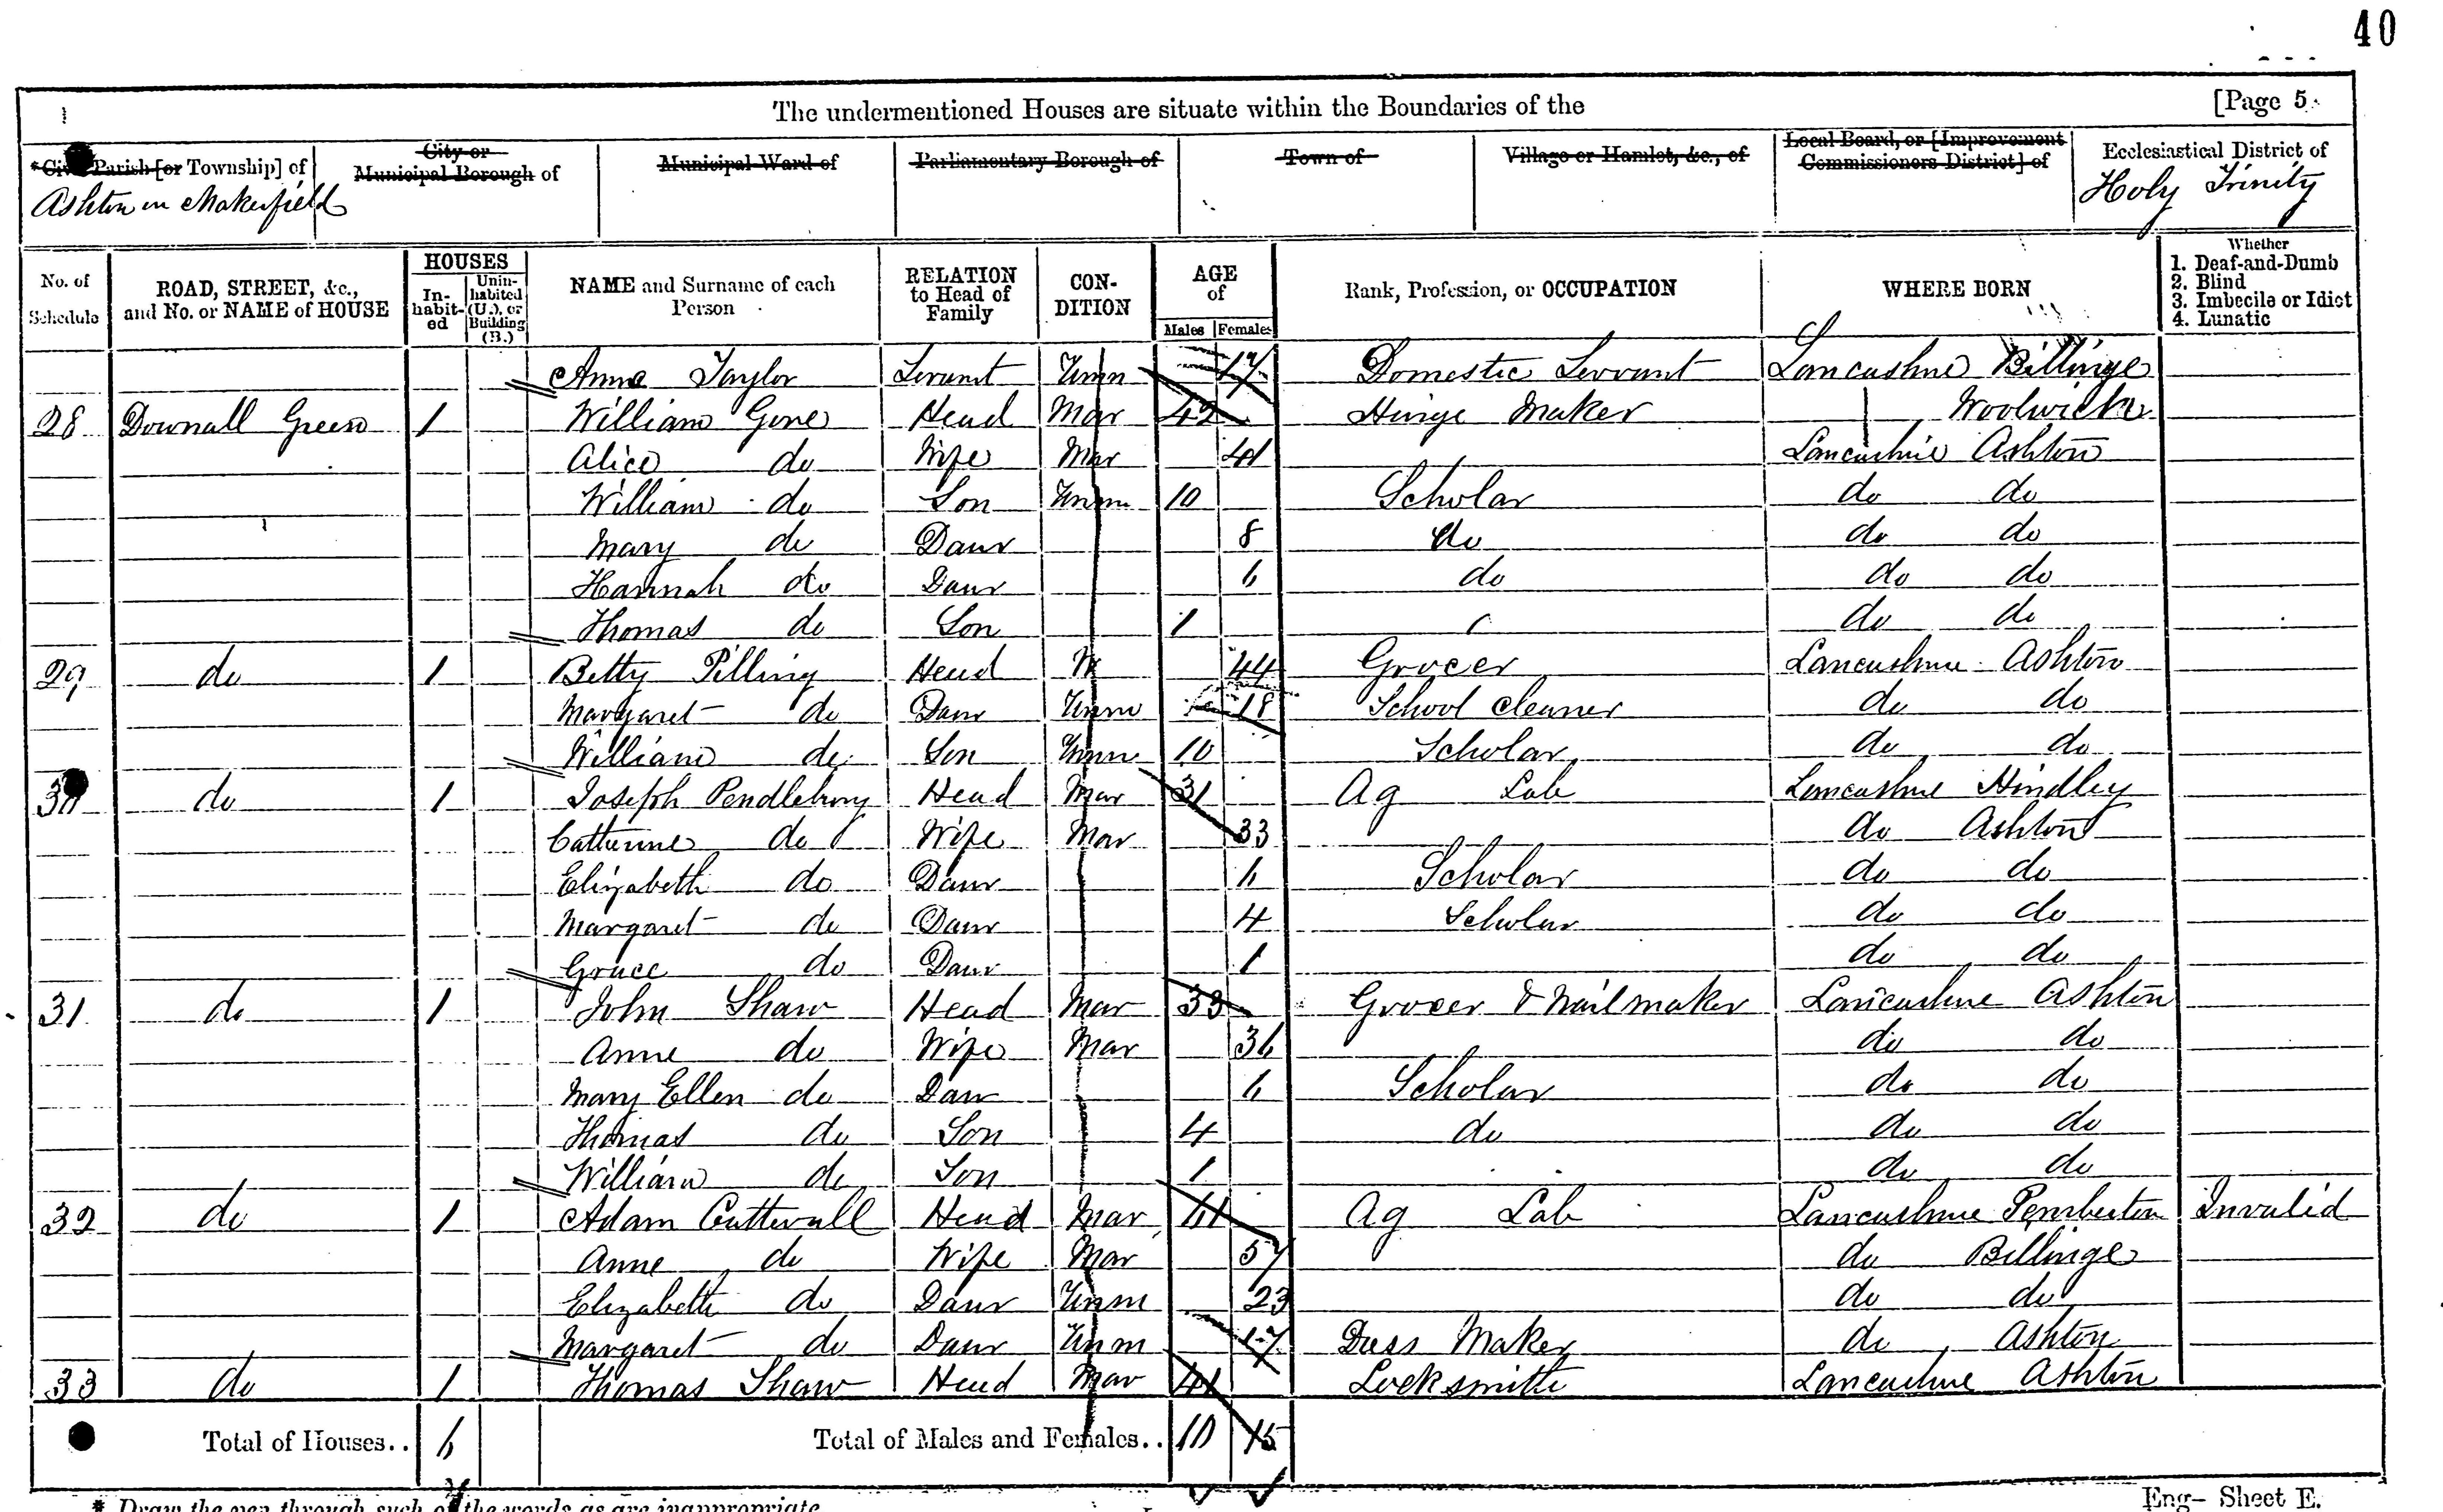 40
The undermentioned Houses are situate within the Boundaries of the [Page 5
*Civil Parish [or Township] of City or Municipal Borough of Municipal Ward of Parliamentary Borough of Town of Village or Hamlet, &c., of Local Board, or [Improvement Commissioners District] of Ecclesiastical District of
Ashton in Makerfield Holy Trinity
No. of Schedule ROAD, STREET, &c., and No. or NAME of HOUSE HOUSES In-habit-ed Unin-habited (U.), or Building (B.) NAME and Surname of each Person RELATION to Head of Family CON-DITION AGE of Males Females Rank, Profession, or OCCUPATION WHERE BORN Whether 1. Deaf-and-Dumb 2. Blind 3. Imbecile or Idiot 4. Lunatic
Anne Taylor Servant Unm 17 Domestic Servant Lancashire Billinge
28 Downall Green 1 William Gore Head Mar 42 Hinge Maker Woolwich
Alice do Wife Mar 41 Lancashire Ashton
William do Son Unm 10 Scholar do do
Mary do Daur 8 do do do
Hannah do Daur 6 do do do
Thomas do Son 1 do do
29 do 1 Betty Pilling Head W 44 Grocer Lancashire Ashton
Margaret do Daur Unm 18 School Cleaner do do
William do Son Unm 10 Scholar do do
30 do 1 Joseph Pendlebury Head Mar 31 Ag Lab Lancashire Hindley
Catherine do Wife Mar 33 do Ashton
Elizabeth do Daur 6 Scholar do do
Margaret do Daur 4 Scholar do do
Grace do Daur 1 do do
31 do 1 John Shaw Head Mar 33 Grocer & Nailmaker Lancashire Ashton
Anne do Wife Mar 36 do do
Mary Ellen do Daur 6 Scholar do do
Thomas do Son 4 do do do
William do Son 1 do do
32 do 1 Adam Catterall Head Mar 61 Ag Lab Lancashire Pemberton Invalid
Anne do Wife Mar 57 do Billinge
Elizabeth do Daur Unm 23 do do
Margaret do Daur Unm 17 Dress Maker do Ashton
33 do 1 Thomas Shaw Head Mar 41 Locksmith Lancashire Ashton
Total of Houses.. 6 Total of Males and Females.. 10 15
* Draw the pen through such of the words as are inappropriate
Eng- Sheet E.